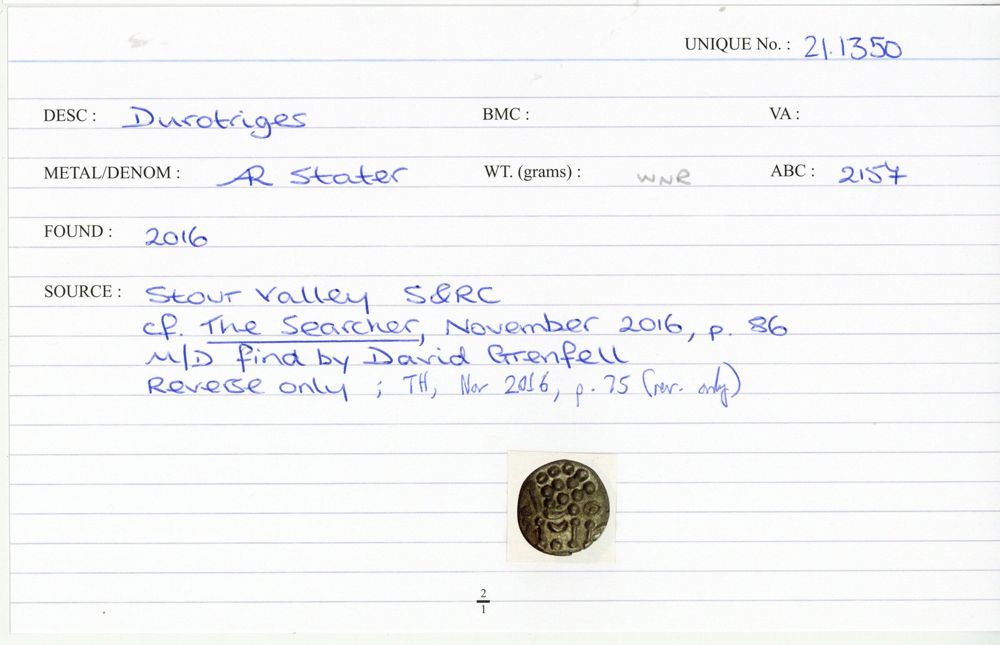 UNIQUE No. : 21.1350
DESC : Durotriges BMC : VA :
METAL/DENOM : AR Stater WT. (grams) : WNR ABC : 2157
FOUND : 2016
SOURCE : Stour Valley S&RC
cf. The Searcher, November 2016, p. 86
M/D find by David Grenfell
Reverse only ; TH, Nov 2016, p. 75 (rev. only)
2
1